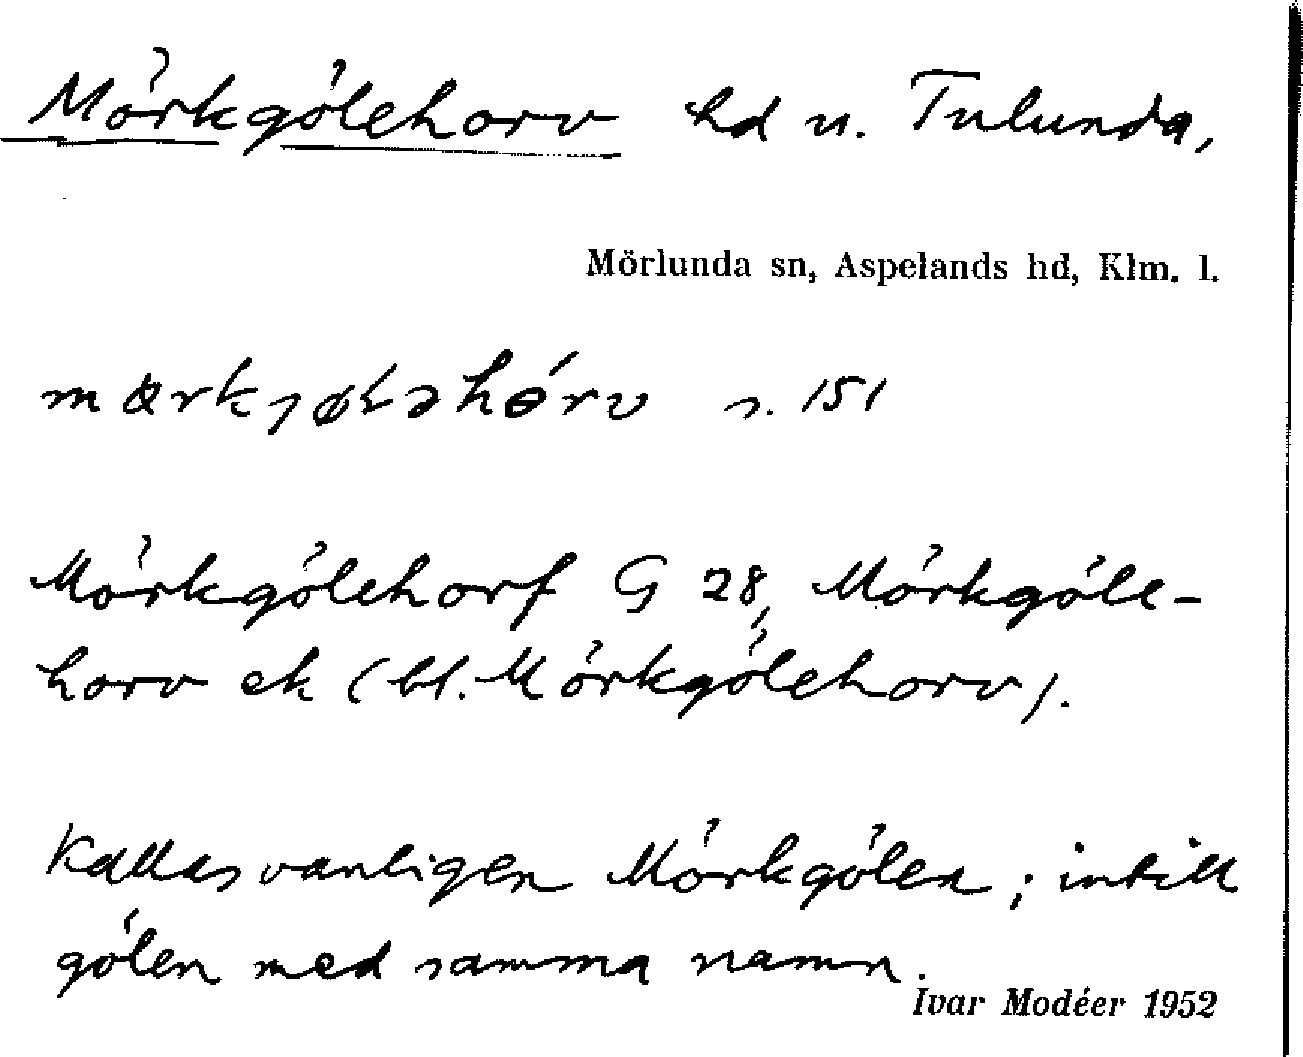 Mörkgölehorv hd u. Tulunda,
Mörlunda sn, Aspelands hd, Klm. l.
s. 151
Mörkgölehorf G 28, Mörkgöle-
horv ek (bl. Mörkgölehorv).
Kallas vanligen Mörkgölen; intill
gölen med samma namn.
Ivar Modéer 1952